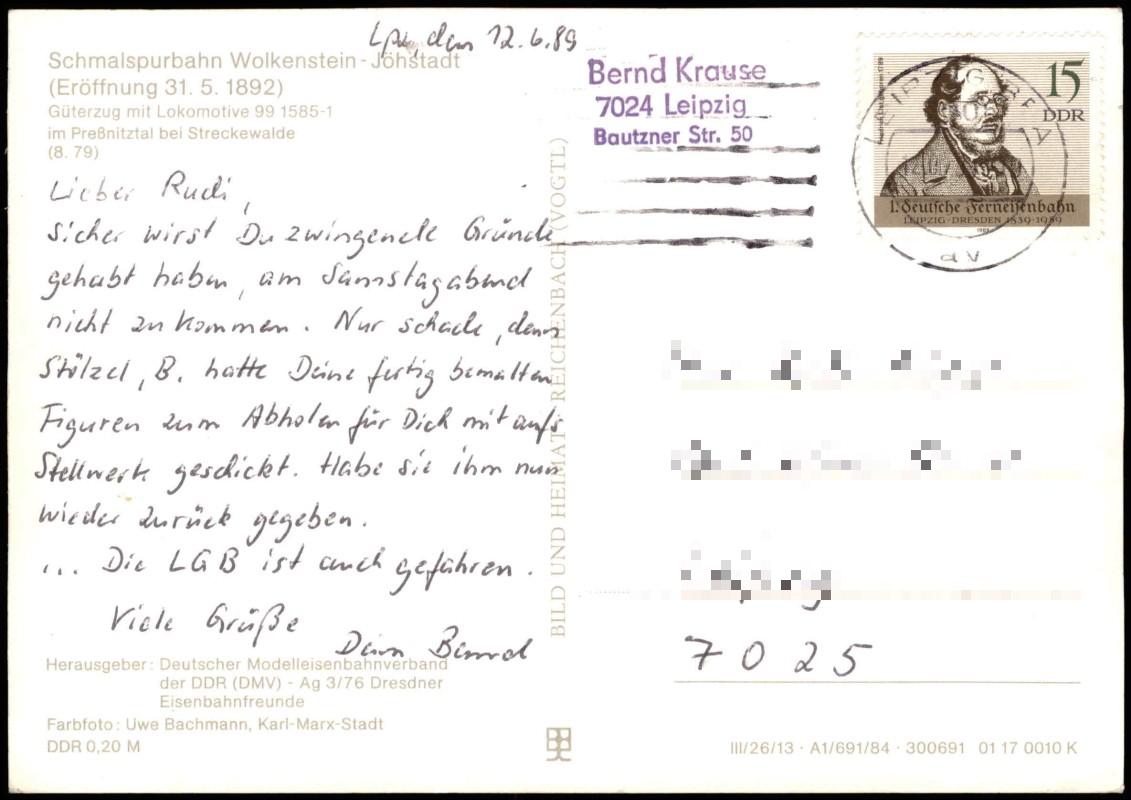 Lpz, den 12.6.89
Schmalspurbahn Wolkenstein - Jöhstadt
(Eröffnung 31. 5. 1892)
Güterzug mit Lokomotive 99 1585-1
im Preßnitztal bei Streckewalde
(8. 79)
Lieber Rudi,
Sicher wirst Du zwingende Gründe
gehabt haben, am Samstagabend
nicht zu kommen. Nur schade, denn
Stölzel, B. hatte Deine fertig bemalten
Figuren zum Abholen für Dich mit aufs
Stellwerk geschickt. Habe sie ihm nun
wieder zurück gegeben.
... Die LGB ist auch gefahren.
Viele Grüße
Dein Bernd
Herausgeber: Deutscher Modelleisenbahnverband
der DDR (DMV) - Ag 3/76 Dresdner
Eisenbahnfreunde
Farbfoto: Uwe Bachmann, Karl-Marx-Stadt
DDR 0,20 M
BILD UND HEIMAT REICHENBACH (VOGTL)
Bernd Krause
7024 Leipzig
Bautzner Str. 50
15
DDR
1. deutsche Ferneisenbahn
LEIPZIG-DRESDEN 1839-1989
av
7025
III/26/13 · A1/691/84 · 300691 01 17 0010 K